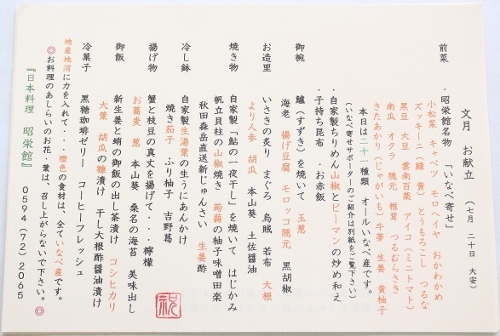 文月 お献立 (七月 二十日 大安)
前菜
・昭栄館名物 「いなべ寄せ」
小松菜 キャベツ モロヘイヤ おかわかめ
ズッキーニ(緑 黄) とうもろこし つるな
黒豆 大豆 雲南百薬 アイコ(ミニトマト)
南瓜 オクラ 隠元 椎茸 つるむらさき
きたあかり(じゃがいも) 牛蒡 生姜 黄柚子
本日は二十一種類 オールいなべ産です。
(いなべ寄せサポーターのご紹介は別紙をご覧下さい)
・自家製ちりめん山椒とピーマンの炒め和え
・子持ち昆布 ・お赤飯
御椀
鱸(すずき)を焼いて 玉葱
海老 揚げ豆腐 モロッコ隠元 黒胡椒
お造里
いさきの炙り まぐろ 烏賊 若布 大根
より人参 胡瓜 本山葵 土佐醤油
焼き物
自家製「鮎の一夜干し」を焼いて はじかみ
帆立貝柱の山椒焼き 蒟蒻の柚子味噌田楽
秋田森岳直送新じゅんさい 生姜酢
冷し鉢
自家製生湯葉の生うにあんかけ
焼き茄子 ふり柚子 吉野葛
揚げ物
蟹と枝豆の真丈を揚げて・・・檸檬
お蕎麦 葱 本山葵 桑名の海苔 美味出し
御飯
新生姜と蛸の御飯の出し茶漬け コシヒカリ
大葉 胡瓜の糠漬け 干し大根酢醤油漬け
冷菓子
黒糖珈琲ゼリー コーヒーフレッシュ
地産地消に力を入れて・・・橙色の食材は、全ていなべ産です。
◎お料理のあしらいのお花・葉は、召し上がらないで下さい。◎
『日本料理 昭栄館』 0594(72)2065
祝